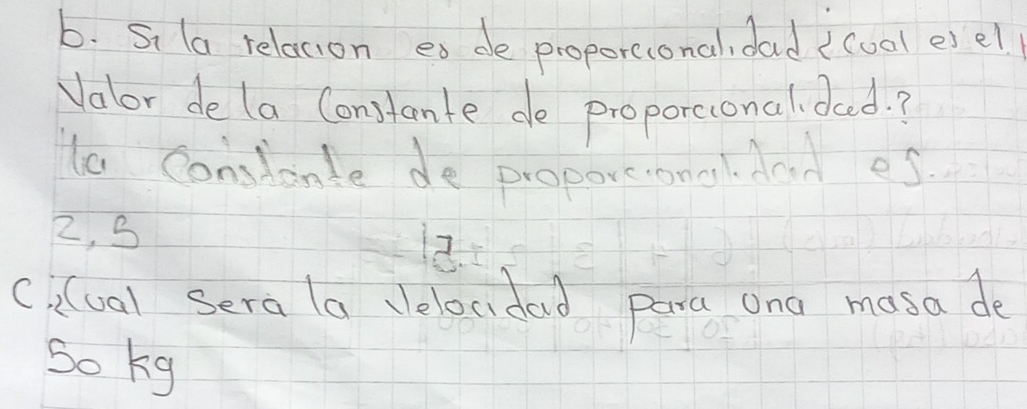 b. Si la relacion es de proporcionalidad ¿cual es el
Valor de la Constante de proporcionalidad.?
la Constante de proporcionalidad es.
2,5
C. ¿Cual Sera la Velocidad para una masa de
50 kg